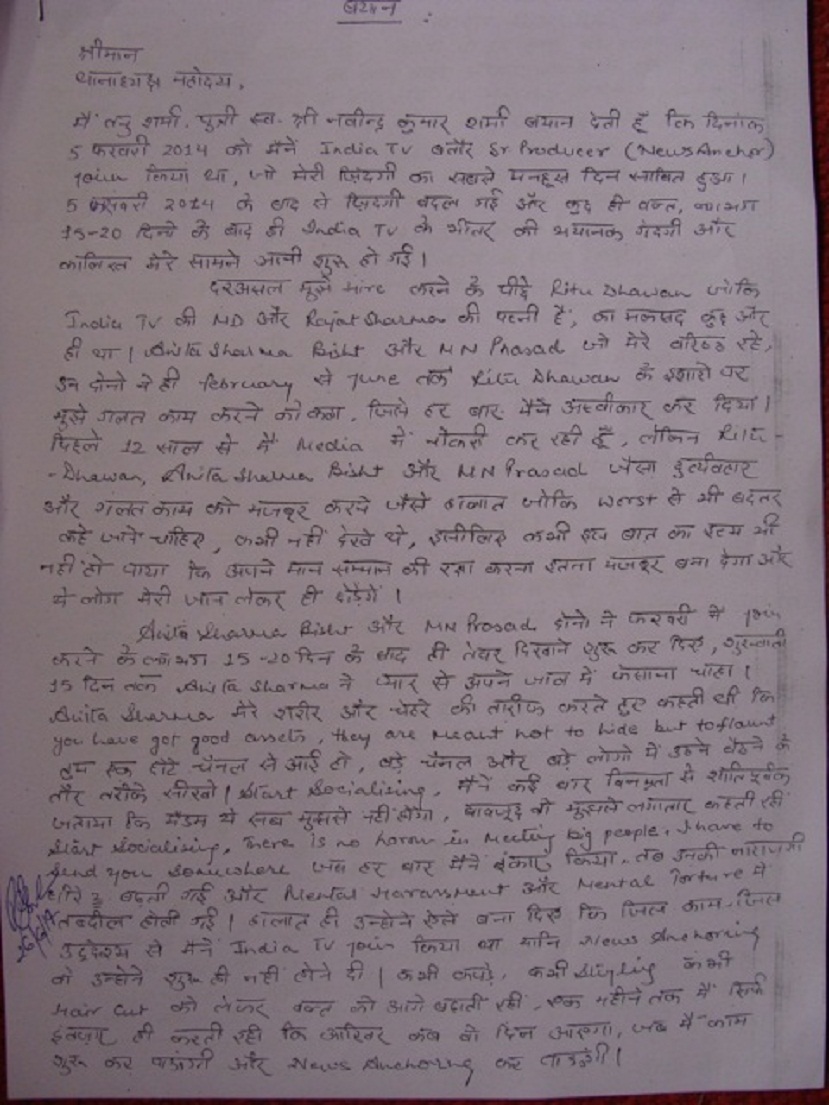 बयान
श्रीमान
थानाध्यक्ष महोदय,
मैं तनु शर्मा, पुत्री स्व. श्री नवीन्द्र कुमार शर्मा बयान देती हूँ कि दिनांक
5 फरवरी 2014 को मैंने India TV बतौर Sr Producer (News Anchor)
join किया था, जो मेरी ज़िंदगी का सबसे मनहूस दिन साबित हुआ।
5 फरवरी 2014 के बाद से ज़िंदगी बदल गई और कुछ ही वक्त, लगभग
15-20 दिनों के बाद ही India TV के भीतर की भयानक गंदगी और
कालिख मेरे सामने आनी शुरू हो गई।
दरअसल मुझे hire करने के पीछे Ritu Dhawan जोकि
India TV की MD और Rajat Sharma की पत्नी हैं, का मकसद कुछ और
ही था। Anita Sharma Bisht और MN Prasad जो मेरे वरिष्ठ रहे,
इन दोनों ने ही february से June तक Ritu Dhawan के इशारों पर
मुझे गलत काम करने को कहा, जिसे हर बार मैंने अस्वीकार कर दिया।
पिछले 12 साल से मैं Media में नौकरी कर रही हूँ, लेकिन Ritu-
-Dhawan, Anita Sharma Bisht और MN Prasad जैसा दुर्व्यवहार
और गलत काम को मजबूर करने जैसे हालात जोकि worst से भी बदतर
कहे जाने चाहिए, कभी नहीं देखे थे, इसीलिए कभी इस बात का इल्म भी
नहीं हो पाया कि अपने मान सम्मान की रक्षा करना इतना मजबूर बना देगा और
ये लोग मेरी जान लेकर ही छोड़ेंगे।
Anita Sharma Bisht और MN Prasad दोनों ने फरवरी में join
करने के लगभग 15-20 दिन के बाद ही तेवर दिखाने शुरू कर दिए, शुरुआती
15 दिन तक Anita Sharma ने प्यार से अपने जाल में फंसाना चाहा।
Anita Sharma मेरे शरीर और चेहरे की तारीफ करते हुए कहती थी कि
you have got good assets, they are meant not to hide but to flaunt
तुम एक छोटे चैनल से आई हो, बड़े चैनल और बड़े लोगों में उठने बैठने के
तौर तरीके सीखो। Start Socialising, मैंने कई बार विनम्रता से शांतिपूर्वक
जताया कि मैडम ये सब मुझसे नहीं होगा, बावजूद वो मुझसे लगातार कहती रहीं
Start Socialising, there is no harm in meeting big people, I have to
Send you Somewhere जब हर बार मैंने इंकार किया, तब उनकी नाराजगी
बढ़ती गई और Mental Harassment और Mental Torture में
तब्दील होती गई। हालात ही उन्होंने ऐसे बना दिए कि जिस काम, जिस
उद्देश्य से मैंने India TV join किया था यानि News Anchoring
वो उन्होंने शुरू ही नहीं होने दी। कभी कपड़े, कभी Styling कभी
Hair Cut को लेकर वक्त को आगे बढ़ाती रहीं, एक महीने तक मैं सिर्फ
इंतजार ही करती रही कि आखिर कब वो दिन आएगा, जब मैं काम
शुरू कर पाऊंगी और News Anchoring कर पाऊंगी।